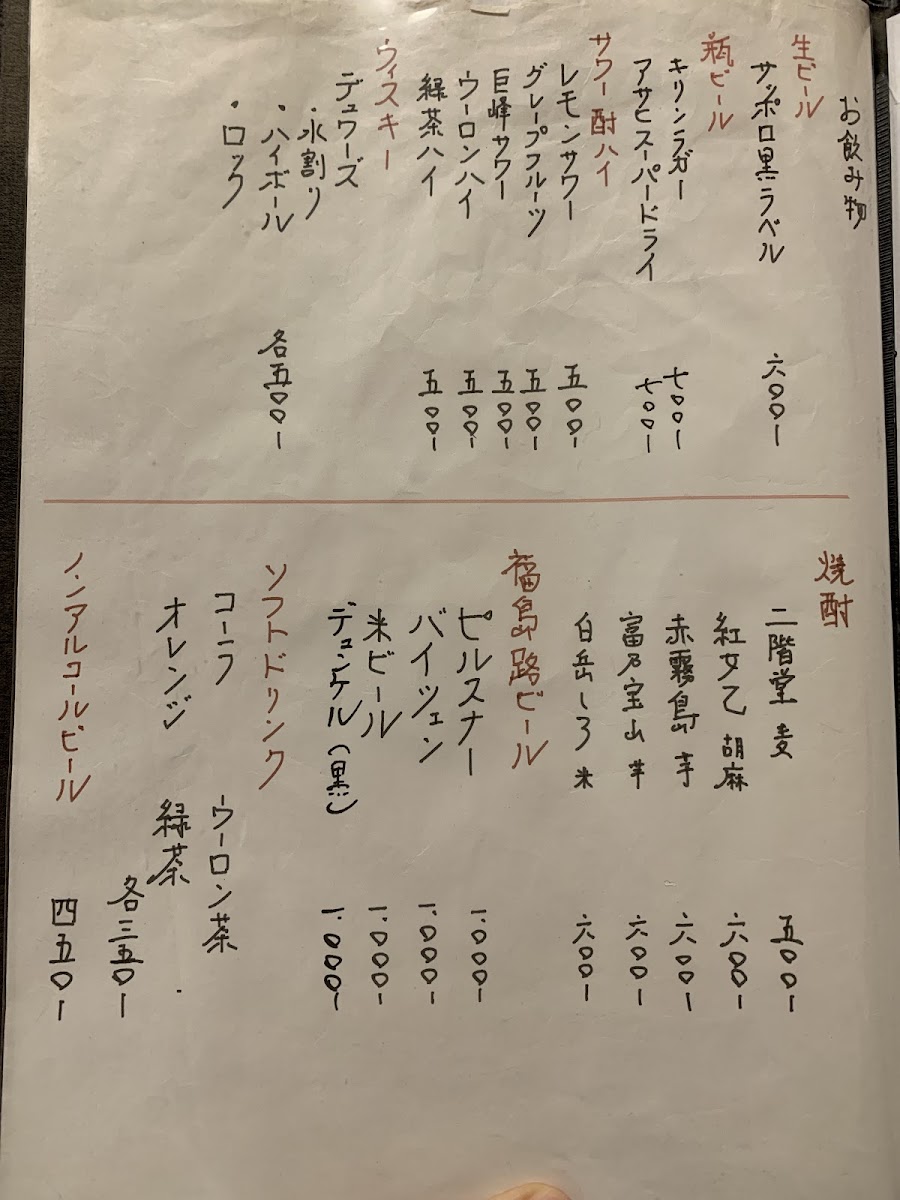 お飲み物
生ビール
サッポロ黒ラベル 六〇〇-
瓶ビール
キリンラガー 七〇〇-
アサヒスーパードライ 七〇〇-
サワー 酎ハイ
レモンサワー 五〇〇-
グレープフルーツ 五〇〇-
巨峰サワー 五〇〇-
ウーロンハイ 五〇〇-
緑茶ハイ 五〇〇-
ウィスキー
デュワーズ
・水割り
・ハイボール 各五〇〇-
・ロック
焼酎
二階堂 麦 五〇〇-
紅女乙 胡麻 六〇〇-
赤霧島 芋 六〇〇-
富乃宝山 芋 六〇〇-
白岳しろ 米 六〇〇-
福島路ビール
ピルスナー 一.〇〇〇-
バイツェン 一.〇〇〇-
米ビール 一.〇〇〇-
デュンケル(黒) 一.〇〇〇-
ソフトドリンク
コーラ ウーロン茶
オレンジ 緑茶
各三五〇-
ノンアルコールビール 四五〇-